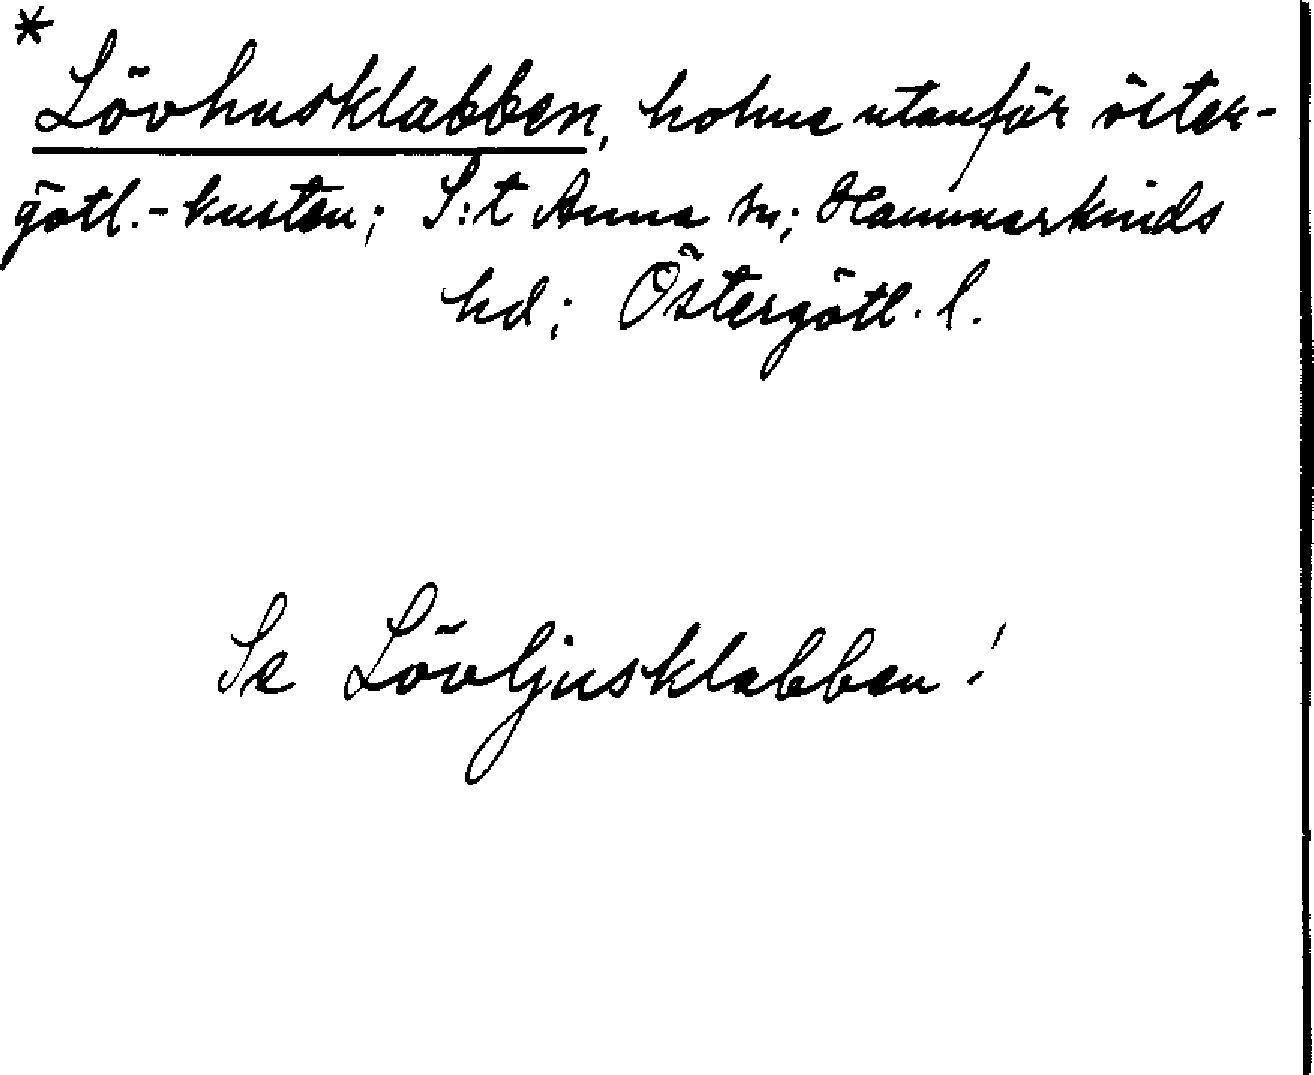 *
Lövhusklabben, holme utanför öster-
götl.-kusten; S:t Anna sn; Hammarkinds
hd; Östergötl. l.
Se Lövljusklabben!